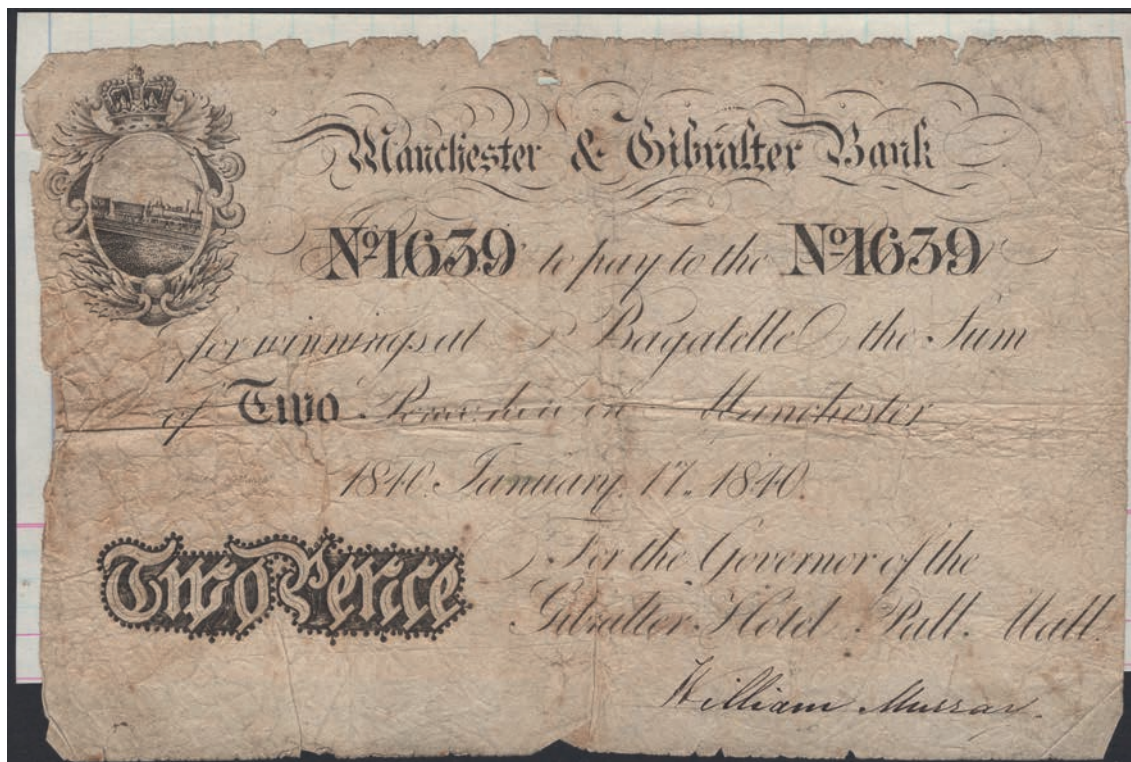 Manchester & Gibralter Bank
Nº1639 to pay to the Nº1639
for winnings at Bagatelle the Sum
of Two Pence here in Manchester
1840. January. 17. 1840.
Two Pence
For the Governor of the
Gibralter Hotel Pall. Mall.
William Murray.